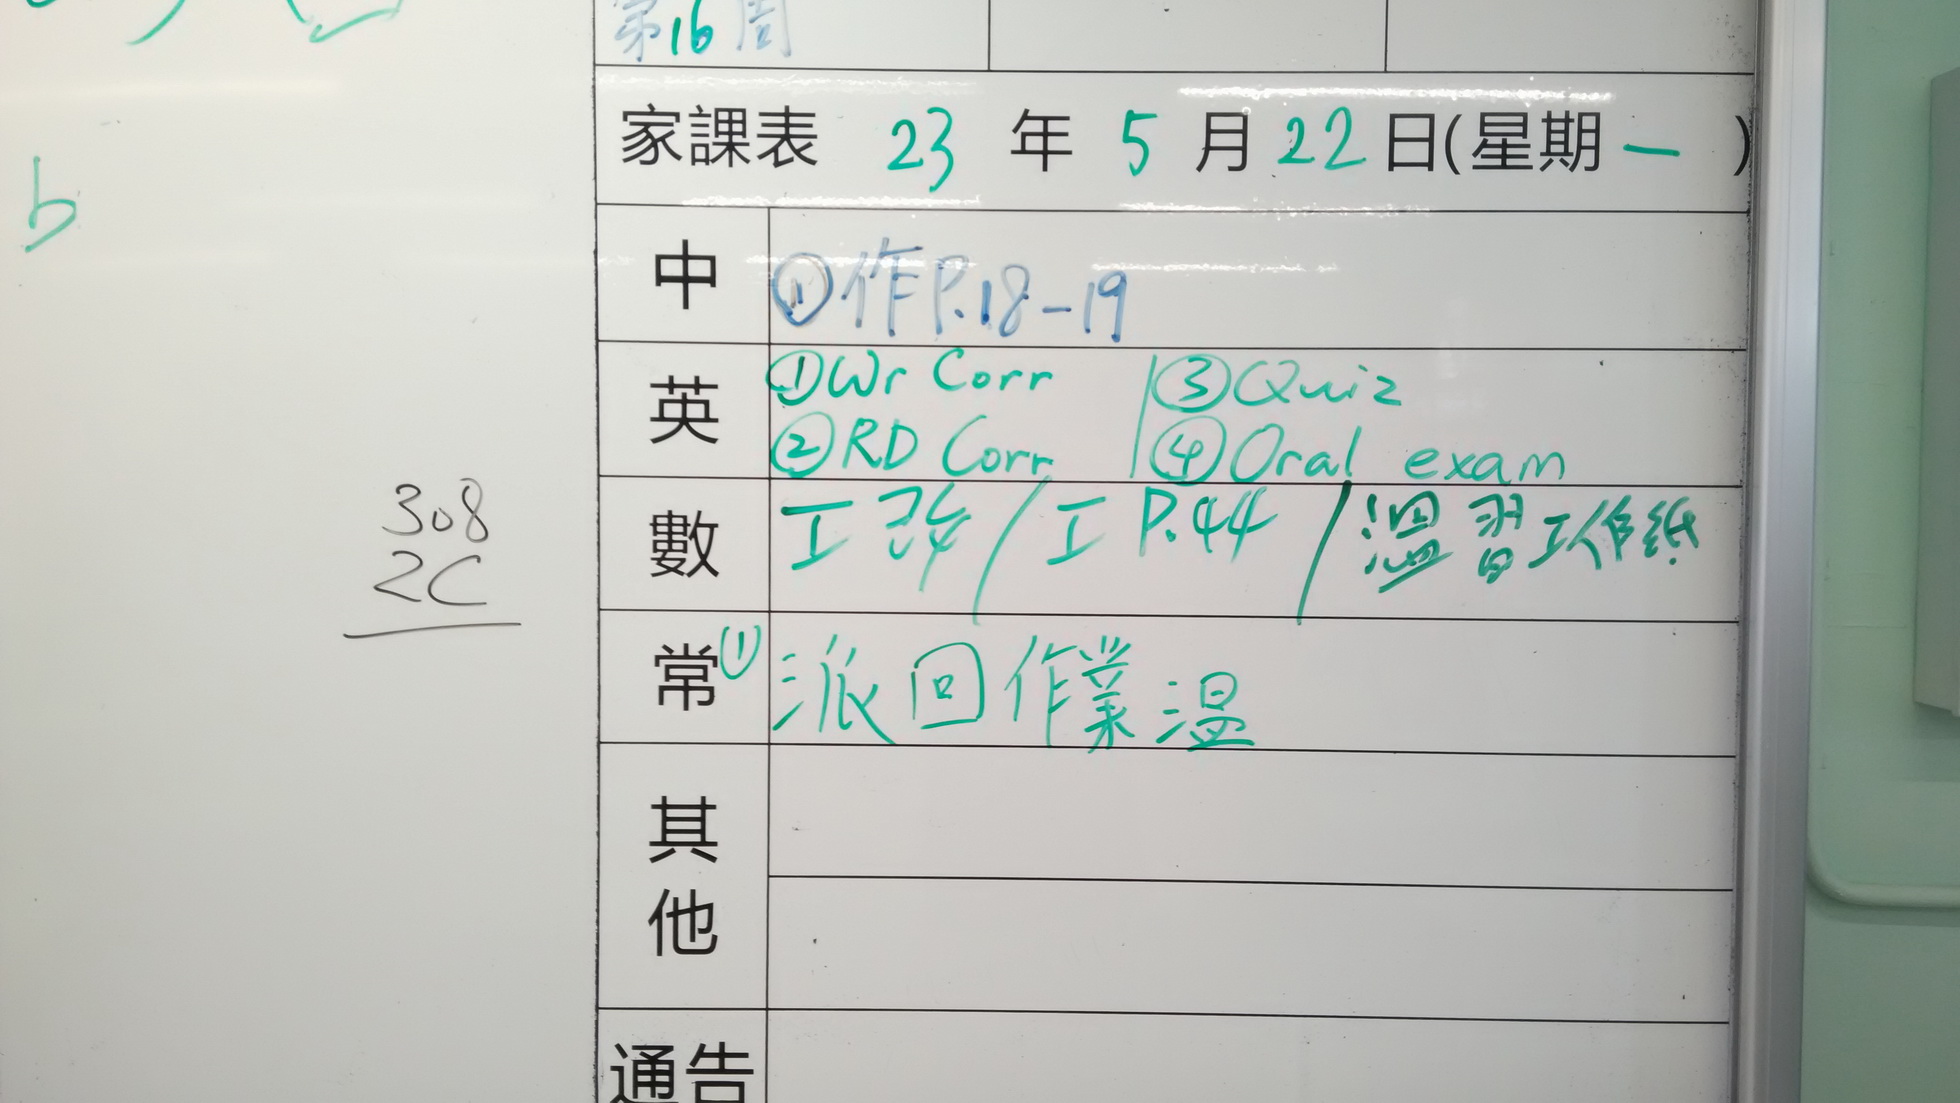 第16周
家課表 23年5月22日(星期一)
b
中 ①作P.18-19
英 ①Wr Corr ③Quiz
②RD Corr ④Oral exam
308
2C
數 工改/工P.44/溫習工作紙
常 ①派回作業溫
其他
通告